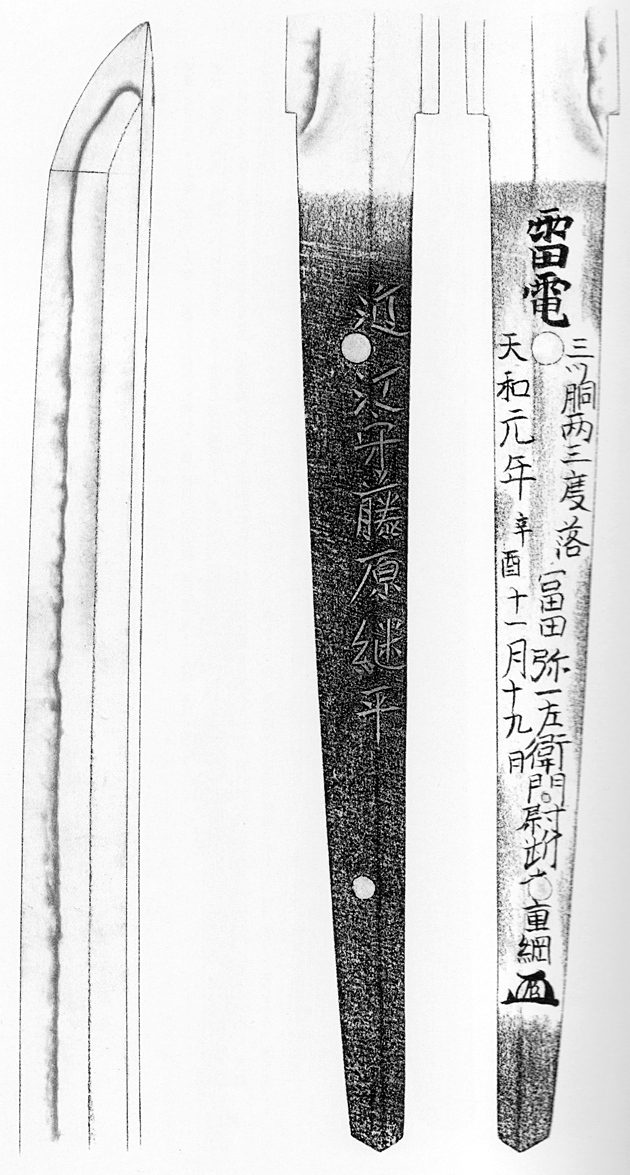 近江守藤原継平
雷電
三ツ胴両三度落
冨田弥一左衛門尉 重綱
天和元年辛酉十一月十九日